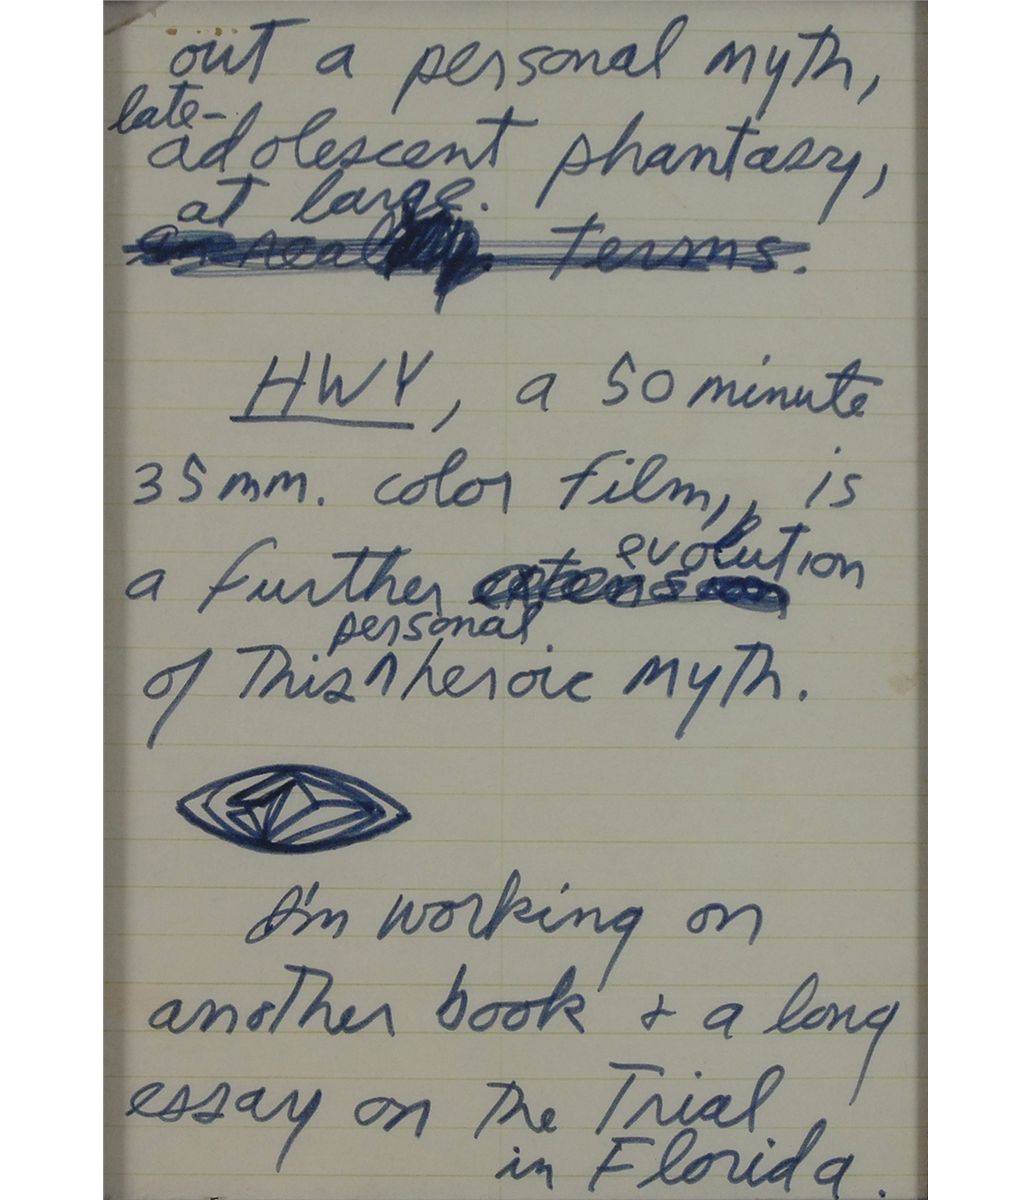 out a personal myth,
late-
adolescent phantasy,
at large.
real terms.
HWY, a 50 minute
35mm. color film,, is
evolution
a further extension
personal
of this ^ heroic myth.
I'm working on
another book & a long
essay on the Trial
in Florida.